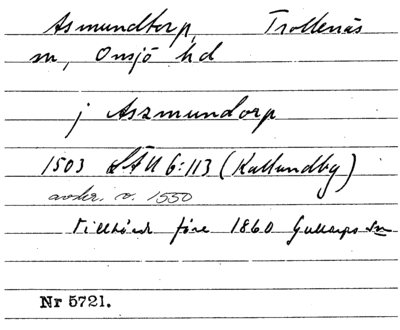 Asmundtorp, Trollenäs
sn, Onsjö hd
j Aszmundorp
1503 LÅU 6:113 (Kallundby)
avskr. v. 1550
tillhörde före 1860 Gullarps sn
Nr 5721.